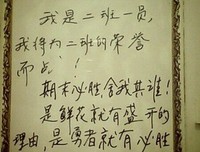 我是二班一员，
我将为二班的荣誉
而战！
期末必胜舍我其谁！
是鲜花就有盛开的
理由 是勇者就有必胜